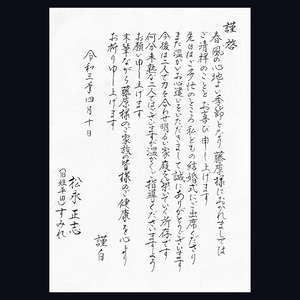 謹啓
春風の心地よい季節となり 藤原様におかれましては
ご清祥のこととお喜び申し上げます
先日はご多忙のところ私どもの結婚式にご出席くださり
また温かいお心遣いをいただきまして誠にありがとうございます
今後は二人で力を合わせ明るい家庭を築いていく所存です
何分未熟な二人でございますが温かいご指導くださいますよう
お願い申し上げます
末筆ながら藤原様のご家族の皆様のご健康を心より
お祈り申し上げます
謹白
令和三年四月十日
松永 正志
(旧姓平田)すみれ